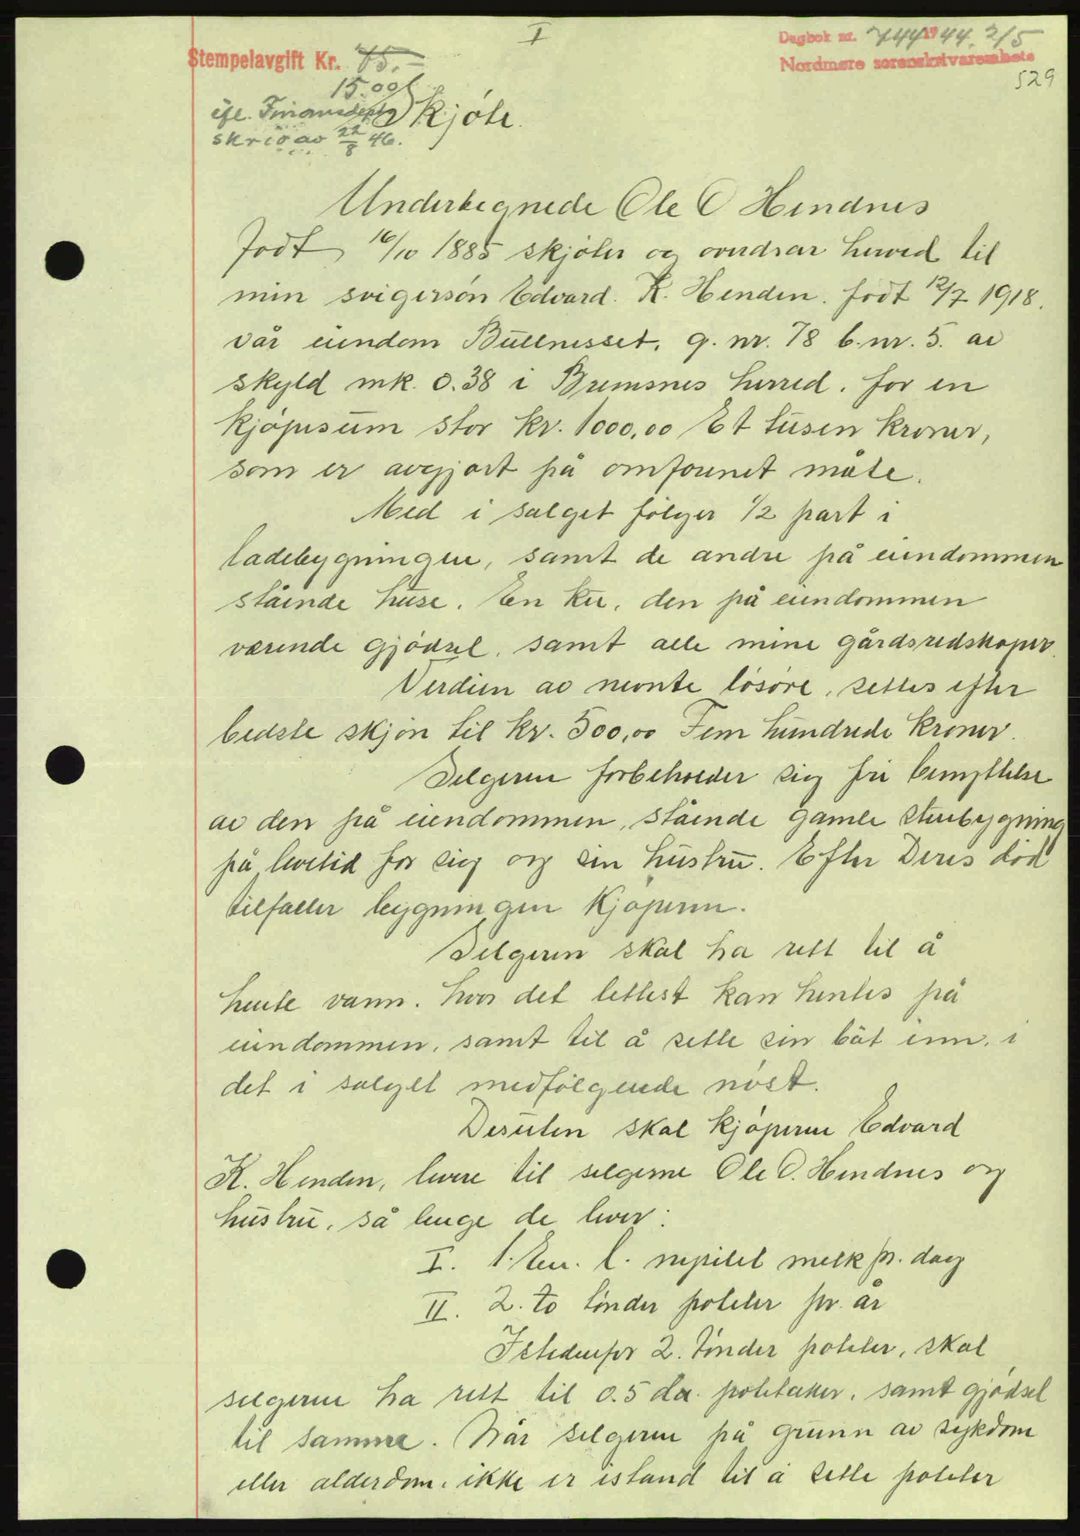 I
Stempelavgift Kr. 75.-
15.00
ifl. Finansdept
skriv av 22/8 46.
Dagbok nr. 744 1944. 2/5
Nordmøre sorenskriverembete
529
Skjöte.
Underbegnede Ole O Hendnes
født 16/10 1885 skjöter og overdrar herved til
min svigersön Edvard K. Henden. født 12/7 1918.
vår eiendom Bullnesset, g. nr. 78 b. nr. 5. av
skyld mk. 0.38 i Bremsnes herred. for en
kjöpesum stor kr. 1000,00 Et tusen kroner,
som er avgjort på omforenet måte.
Med i salget fölger 1/2 part i
ladebygningen, samt de andre på eiendommen
stående huse. En ku, den på eiendommen
værende gjödsel, samt alle mine gårdsredskaper.
Verdien av nevnte lösöre, settes efter
bedste skjön til kr. 500,00 Fem hundrede kroner.
Selgeren forbeholder sig fri benyttelse
av den på eiendommen, stående gamle stuebygning
på levetid for sig og sin hustru. Efter Deres död
tilfaller bygningen kjöperen.
Selgeren skal ha rett til å
hente vann. hvor det lettest kan hentes på
eiendommen, samt til å sette sin båt inn. i
det i salget medfölgende nöst.
Desuten skal kjöperen Edvard
K. Henden, levere til selgerne Ole O. Hendnes og
hustru, så lenge de lever:
I. 1. En. l. nysilet melk pr. dag
II. 2. to tönder poteter pr. år
Istedenfor 2. tönder poteter, skal
selgeren ha rett til 0.5 da. potetaker, samt gjödsel
til samme. Når selgeren på grunn av sykdom
eller alderdom, ikke er istand til å sette poteter